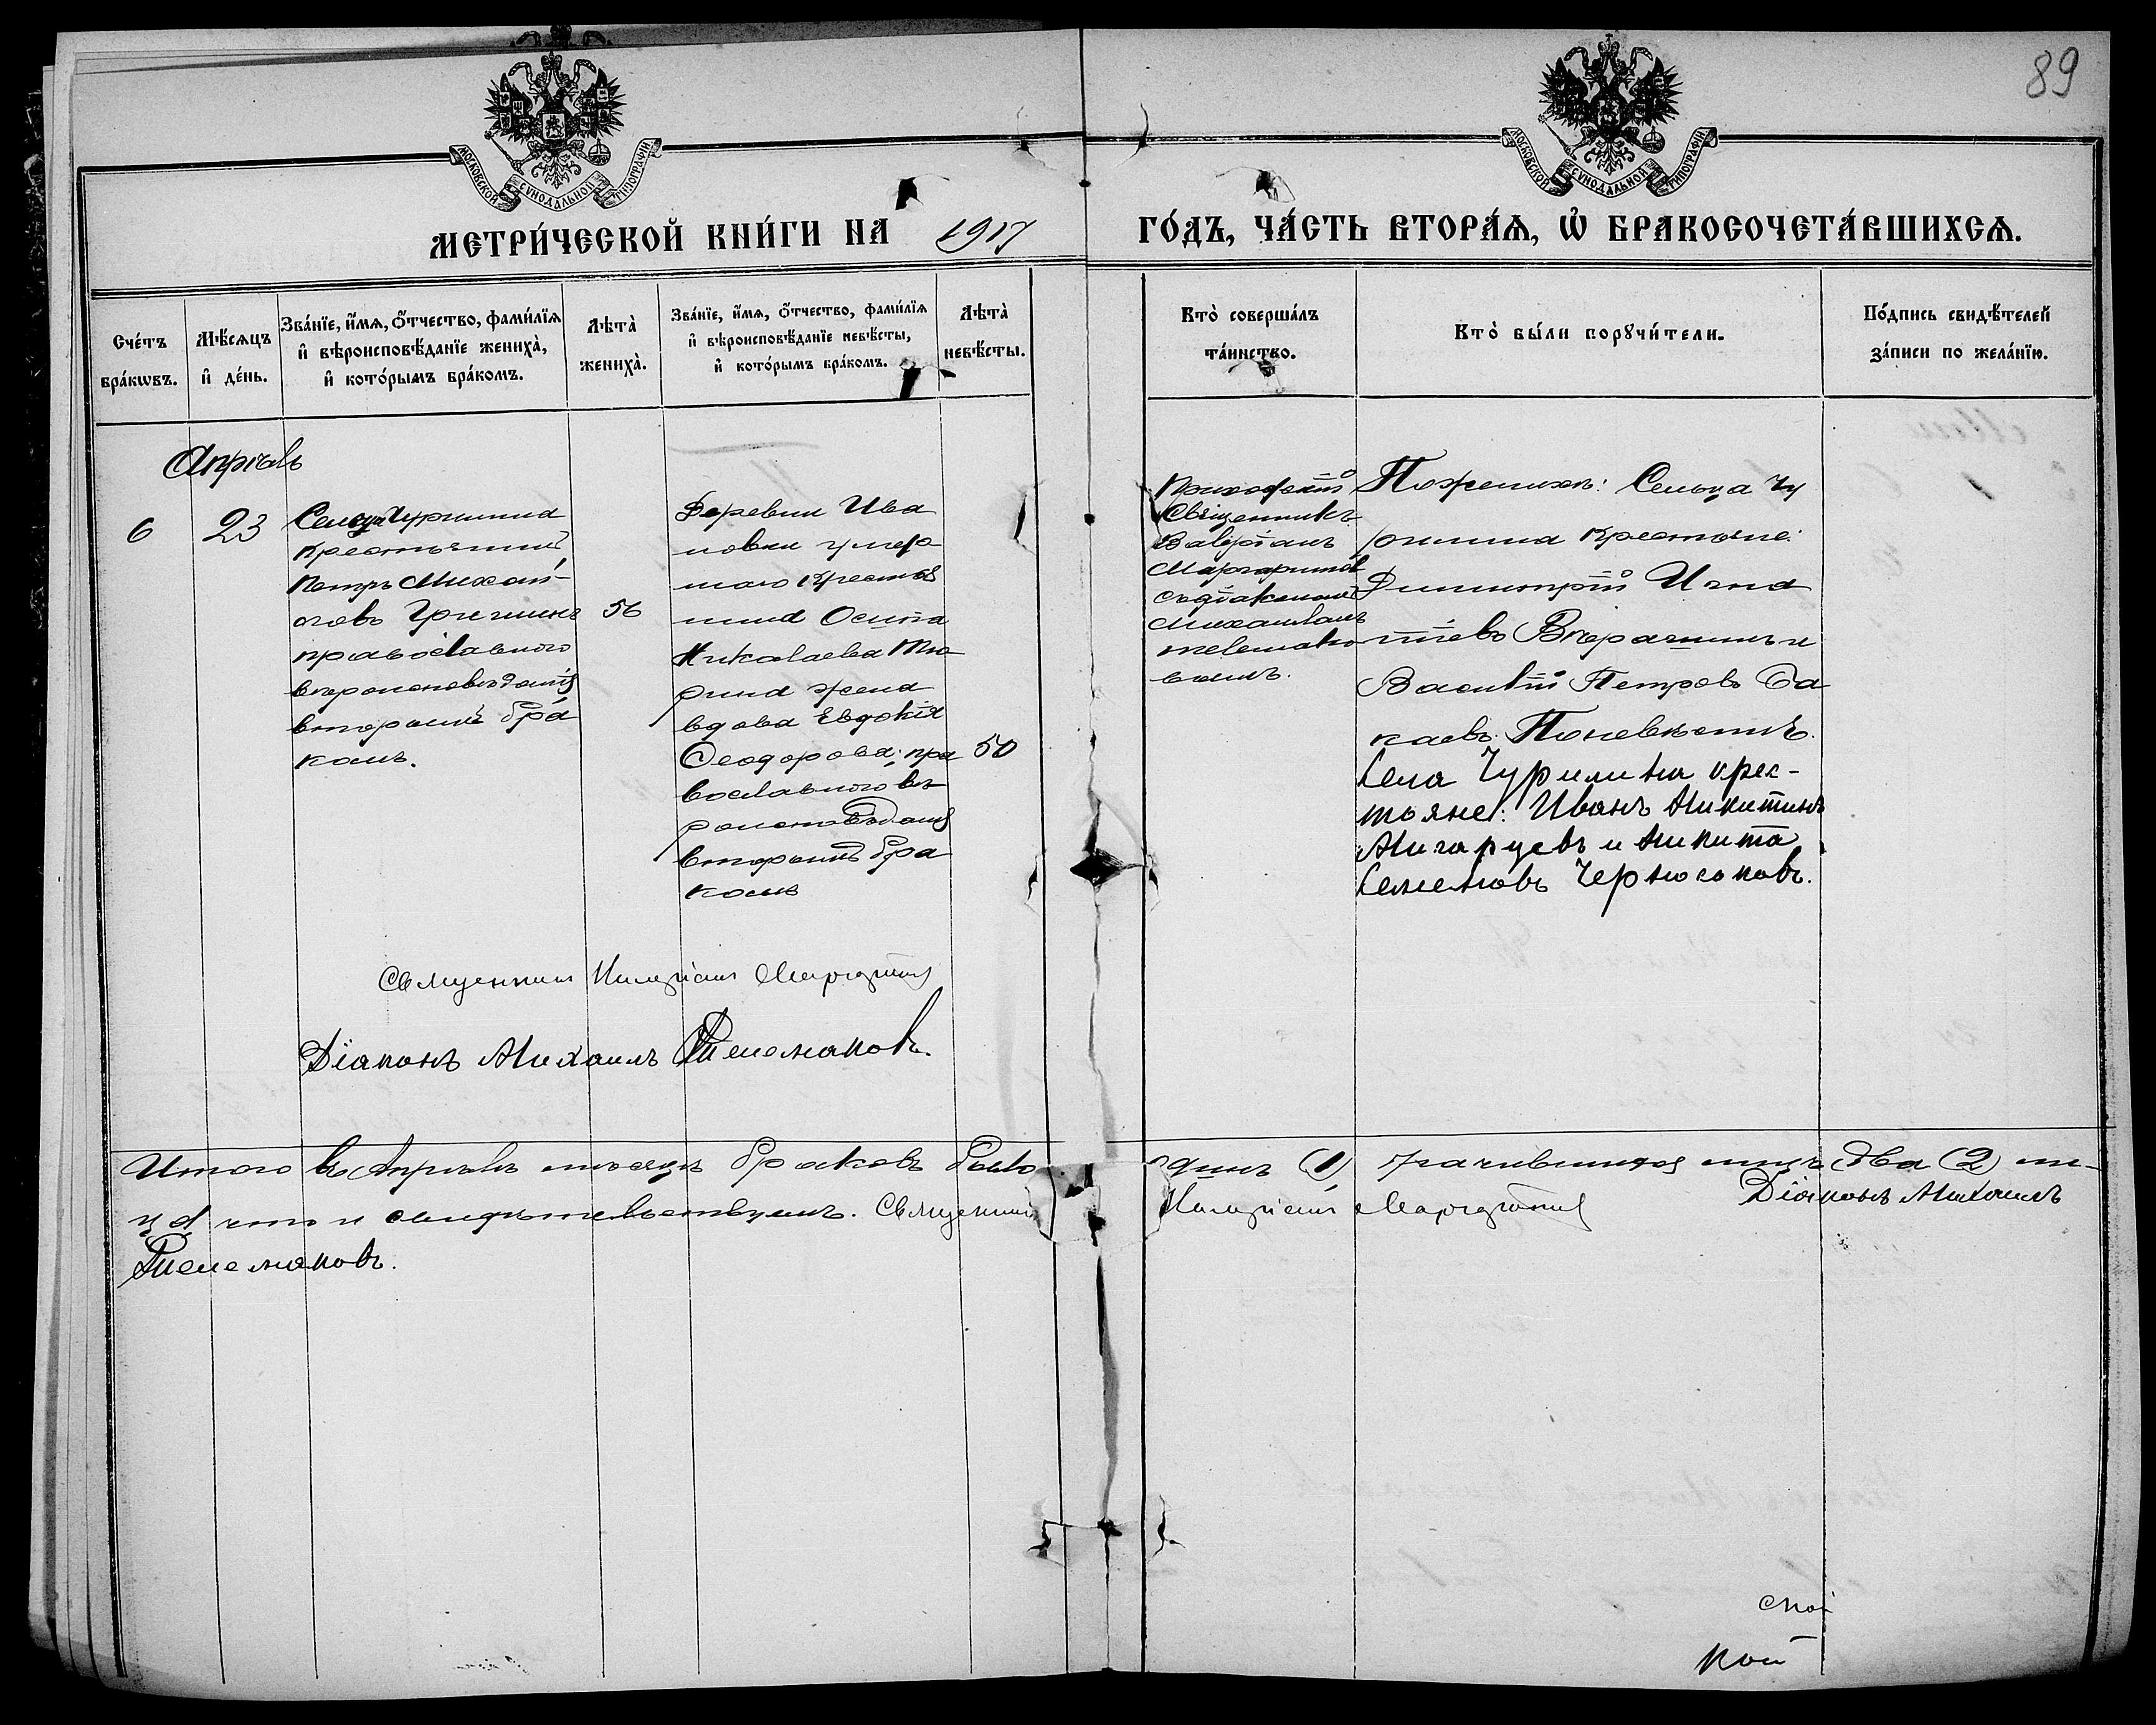 89
МОСКОВСКОЙ СѴНОДАЛЬНОЙ ТИПОГРАФІИ
МОСКОВСКОЙ СѴНОДАЛЬНОЙ ТИПОГРАФІИ
МЕТРИ́ЧЕСКОЙ КНИ́ГИ НА 1917
ГО́ДЪ, ЧА́СТЬ ВТОРА́Ѧ, Ѡ҆ БРАКОСОЧЕТА́ВШИХСѦ.
Сче́тъ
бра́кѡвъ.
Мѣ́сѧцъ
и҆ де́нь.
Зва́нїе, и҆́мѧ, ѻ҆́тчество, фами́лїѧ
и҆ вѣроисповѣ́данїе жениха̀,
и҆ кото́рымъ бра́комъ.
Лѣта̀
жениха̀.
Зва́нїе, и҆́мѧ, ѻ҆́тчество, фами́лїѧ
и҆ вѣроисповѣ́данїе невѣ́сты,
и҆ кото́рымъ бра́комъ.
Лѣта̀
невѣ́сты.
Кто̀ соверша́лъ
та́инство.
Кто̀ бы́ли порꙋчи́тели.
По́дпись свидѣ́телей
за́писи по жела́нїю.
Апрѣль
6
23
Сельца Чурилина
крестьянинъ
Петръ Михай-
ловъ
православнаго
вѣроисповѣданія
вторымъ бра
комъ.
56
Деревни Ива
новки умер
шаго крестья
нина Осипа
Николаева Тю
рина жена
вдова Евдокія
Ѳеодорова; пра
вославнаго вѣ
роисповѣданія
вторымъ бра
комъ
50
Приходскій
Священникъ
Валеріанъ
Маргаритовъ
съ діакономъ
Михаиломъ
Телемако
вымъ.
По женихѣ: Сельца Чу
рилина крестьяне:
Димитрій Игна
тіевъ и
Василій Петровъ Ба
каевъ. По невѣстѣ:
Села Чурилина крес-
тьяне: Иванъ Никитинъ
и Никита
Семеновъ Черносоковъ.
Священникъ Маргаритовъ
Діаконъ Михаилъ Телемаковъ.
Итого въ Апрѣлѣ мѣсяцѣ браковъ было
одинъ (1), лицъ два (2) ли-
ца что и свидѣтельствуемъ. Священникъ
Маргаритовъ
Діаконъ Михаилъ
Телемаковъ.
кой